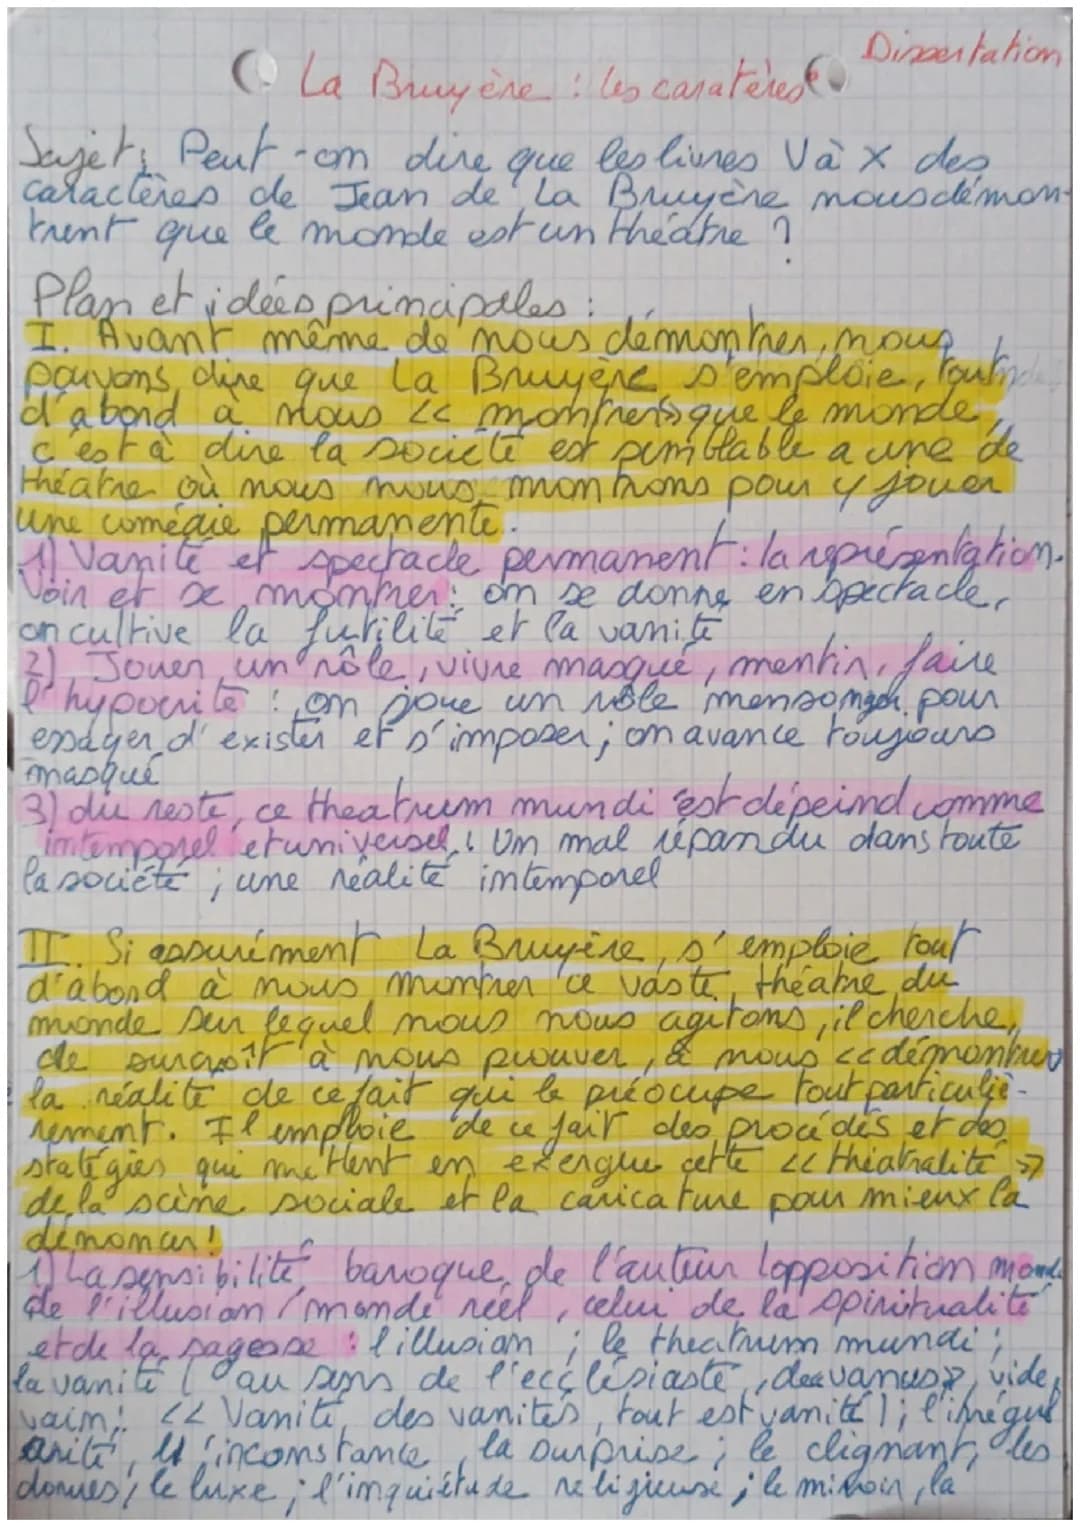 Dissertation
La Bruyère : les caratères
Sujet : Peut-on dire que les livres V à X des
caractères de Jean de La Bruyère nous démon-
trent que le monde est un théatre ?
Plan et idées principales :
I. Avant même de nous démontrer, nous
pouvons dire que La Bruyère s'emploie, tout
d'abord à nous << montrer >> que le monde,
c'est à dire la société est semblable a une de
théatre où nous nous montrons pour y jouer
une comédie permanente.
1) Vanité et spectacle permanent : la représentation.
Voir et se montrer : on se donne en spectacle,
on cultive la futilité et la vanité
2) Jouer un rôle, vivre masqué, mentir, faire
l'hypocrite : on joue un rôle mensonger pour
essayer d'exister et s'imposer ; on avance toujours
masqué
3) du reste, ce theatrum mundi est dépeind comme
intemporel et universel : Un mal répandu dans toute
la société ; une réalité intemporel
II. Si assurément La Bruyère, s'emploie tout
d'abord à nous montrer ce vaste théatre du
monde sur lequel nous nous agitons, il cherche,
de surcroît à nous prouver, à nous << démontrer >>
la réalité de ce fait qui le préocupe tout particuliè-
rement. Il emploie de ce fait des procédés et des
statégies qui mettent en exergue cette << théatralité >>
de la scène sociale et la caricature pour mieux la
dénoncer !
1) La sensibilité baroque de l'auteur l'opposition monde
de l'illusion / monde réel, celui de la spiritualité
et de la sagesse : l'illusion ; le theatrum mundi ;
la vanité ( au sens de l'ecclésiaste, de vide,
vain : << Vanité des vanités, tout est vanité ) ; l'irrégul
arité, l'inconstance, la surprise ; le clignant, les
dorures, le luxe ; l'inquiétude religieuse ; le miroir, la